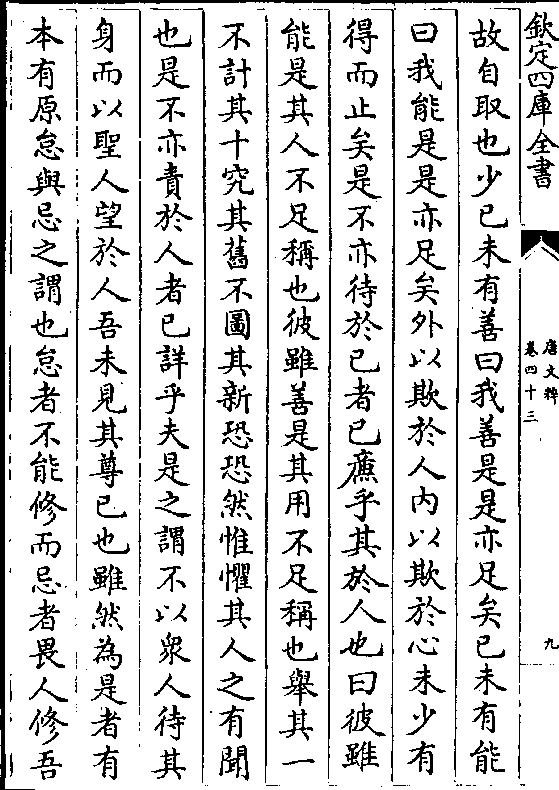 欽定四庫全書
唐文粹
卷四十三
九
故自取也少已未有善曰我善是是亦足矣已未有能
曰我能是是亦足矣外以欺於人内以欺於心未少有
得而止矣是不亦待於已者已廉乎其於人也曰彼雖
能是其人不足稱也彼雖善是其用不足稱也舉其一
不計其十究其舊不圖其新恐恐然惟懼其人之有聞
也是不亦責於人者已詳乎夫是之謂不以衆人待其
身而以聖人望於人吾未見其尊已也雖然為是者有
本有原怠與忌之謂也怠者不能修而忌者畏人修吾